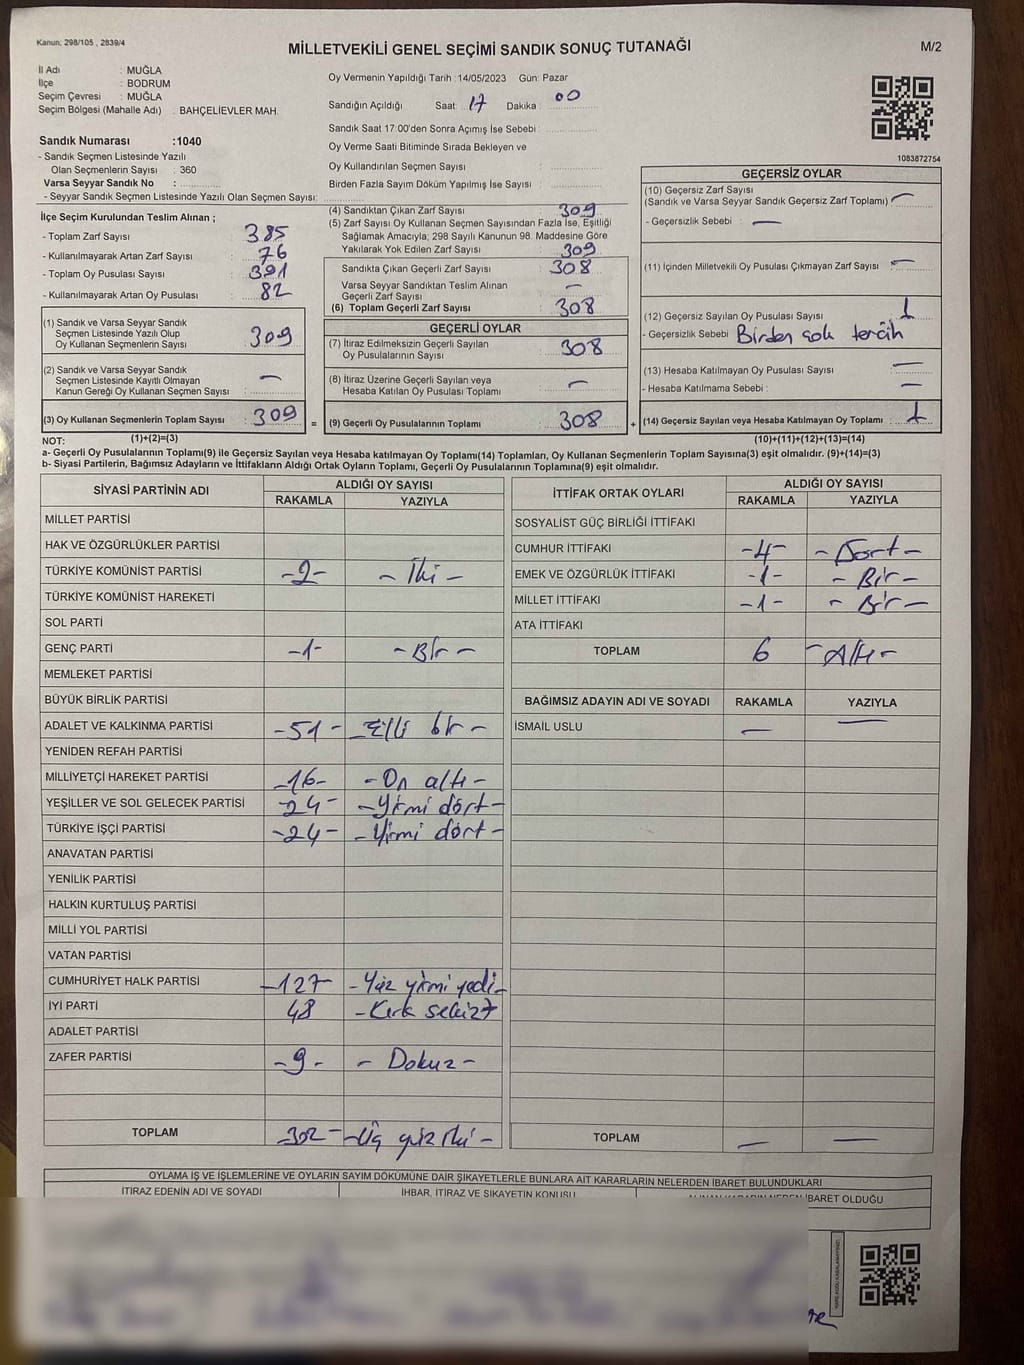 Kanun; 298/105 , 2839/4
MİLLETVEKİLİ GENEL SEÇİMİ SANDIK SONUÇ TUTANAĞI
M/2
İl Adı : MUĞLA
İlçe : BODRUM
Seçim Çevresi : MUĞLA
Seçim Bölgesi (Mahalle Adı) : BAHÇELİEVLER MAH.
Sandık Numarası :1040
- Sandık Seçmen Listesinde Yazılı
Olan Seçmenlerin Sayısı : 360
Varsa Seyyar Sandık No :
- Seyyar Sandık Seçmen Listesinde Yazılı Olan Seçmen Sayısı:
Oy Vermenin Yapıldığı Tarih :14/05/2023 Gün: Pazar
Sandığın Açıldığı Saat: 17 Dakika : 00
Sandık Saat 17:00'den Sonra Açımış İse Sebebi :
Oy Verme Saati Bitiminde Sırada Bekleyen ve
Oy Kullandırılan Seçmen Sayısı :
Birden Fazla Sayım Döküm Yapılmış İse Sayısı :
1083872754
İlçe Seçim Kurulundan Teslim Alınan ;
- Toplam Zarf Sayısı : 385
- Kullanılmayarak Artan Zarf Sayısı : 76
- Toplam Oy Pusulası Sayısı : 391
- Kullanılmayarak Artan Oy Pusulası : 82
(1) Sandık ve Varsa Seyyar Sandık
Seçmen Listesinde Yazılı Olup
Oy Kullanan Seçmenlerin Sayısı : 309
(2) Sandık ve Varsa Seyyar Sandık
Seçmen Listesinde Kayıtlı Olmayan
Kanun Gereği Oy Kullanan Seçmen Sayısı : —
(3) Oy Kullanan Seçmenlerin Toplam Sayısı : 309
(4) Sandıktan Çıkan Zarf Sayısı : 309
(5) Zarf Sayısı Oy Kullanan Seçmen Sayısından Fazla İse, Eşitliği
Sağlamak Amacıyla; 298 Sayılı Kanunun 98. Maddesine Göre
Yakılarak Yok Edilen Zarf Sayısı : 309
Sandıkta Çıkan Geçerli Zarf Sayısı : 308
Varsa Seyyar Sandıktan Teslim Alınan
Geçerli Zarf Sayısı : —
(6) Toplam Geçerli Zarf Sayısı : 308
GEÇERLİ OYLAR
(7) İtiraz Edilmeksizin Geçerli Sayılan
Oy Pusulalarının Sayısı : 308
(8) İtiraz Üzerine Geçerli Sayılan veya
Hesaba Katılan Oy Pusulası Toplamı : —
= (9) Geçerli Oy Pusulalarının Toplamı : 308
GEÇERSİZ OYLAR
(10) Geçersiz Zarf Sayısı
(Sandık ve Varsa Seyyar Sandık Geçersiz Zarf Toplamı) : —
- Geçersizlik Sebebi : —
(11) İçinden Milletvekili Oy Pusulası Çıkmayan Zarf Sayısı : —
(12) Geçersiz Sayılan Oy Pusulası Sayısı : 1
- Geçersizlik Sebebi : Birden çok tercih
(13) Hesaba Katılmayan Oy Pusulası Sayısı : —
- Hesaba Katılmama Sebebi : —
+ (14) Geçersiz Sayılan veya Hesaba Katılmayan Oy Toplamı : 1
NOT: (1)+(2)=(3)
(10)+(11)+(12)+(13)=(14)
a- Geçerli Oy Pusulalarının Toplamı(9) ile Geçersiz Sayılan veya Hesaba Katılmayan Oy Toplamı(14) Toplamları, Oy Kullanan Seçmenlerin Toplam Sayısına(3) eşit olmalıdır. (9)+(14)=(3)
b- Siyasi Partilerin, Bağımsız Adayların ve İttifakların Aldığı Ortak Oyların Toplamı, Geçerli Oy Pusulalarının Toplamına(9) eşit olmalıdır.
SİYASİ PARTİNİN ADI ALDIĞI OY SAYISI
RAKAMLA YAZIYLA
MİLLET PARTİSİ
HAK VE ÖZGÜRLÜKLER PARTİSİ
TÜRKİYE KOMÜNİST PARTİSİ -2- - İki -
TÜRKİYE KOMÜNİST HAREKETİ
SOL PARTİ
GENÇ PARTİ -1- - Bir -
MEMLEKET PARTİSİ
BÜYÜK BİRLİK PARTİSİ
ADALET VE KALKINMA PARTİSİ -51- - Elli bir -
YENİDEN REFAH PARTİSİ
MİLLİYETÇİ HAREKET PARTİSİ -16- - On altı -
YEŞİLLER VE SOL GELECEK PARTİSİ -24- - Yirmi dört -
TÜRKİYE İŞÇİ PARTİSİ -24- - Yirmi dört -
ANAVATAN PARTİSİ
YENİLİK PARTİSİ
HALKIN KURTULUŞ PARTİSİ
MİLLİ YOL PARTİSİ
VATAN PARTİSİ
CUMHURİYET HALK PARTİSİ -127- - Yüz yirmi yedi -
İYİ PARTİ 48 - Kırk sekiz
ADALET PARTİSİ
ZAFER PARTİSİ -9- - Dokuz -
TOPLAM -302- - Üç yüz iki -
İTTİFAK ORTAK OYLARI ALDIĞI OY SAYISI
RAKAMLA YAZIYLA
SOSYALİST GÜÇ BİRLİĞİ İTTİFAKI
CUMHUR İTTİFAKI -4- - Dört -
EMEK VE ÖZGÜRLÜK İTTİFAKI -1- - Bir -
MİLLET İTTİFAKI -1- - Bir -
ATA İTTİFAKI
TOPLAM 6 - Altı -
BAĞIMSIZ ADAYIN ADI VE SOYADI RAKAMLA YAZIYLA
İSMAİL USLU — —
TOPLAM — —
OYLAMA İŞ VE İŞLEMLERİNE VE OYLARIN SAYIM DÖKÜMÜNE DAİR ŞİKAYETLERLE BUNLARA AİT KARARLARIN NELERDEN İBARET BULUNDUKLARI
İTİRAZ EDENİN ADI VE SOYADI İHBAR, İTİRAZ VE ŞİKAYETİN KONUSU ALINAN KARARIN NEDEN İBARET OLDUĞU